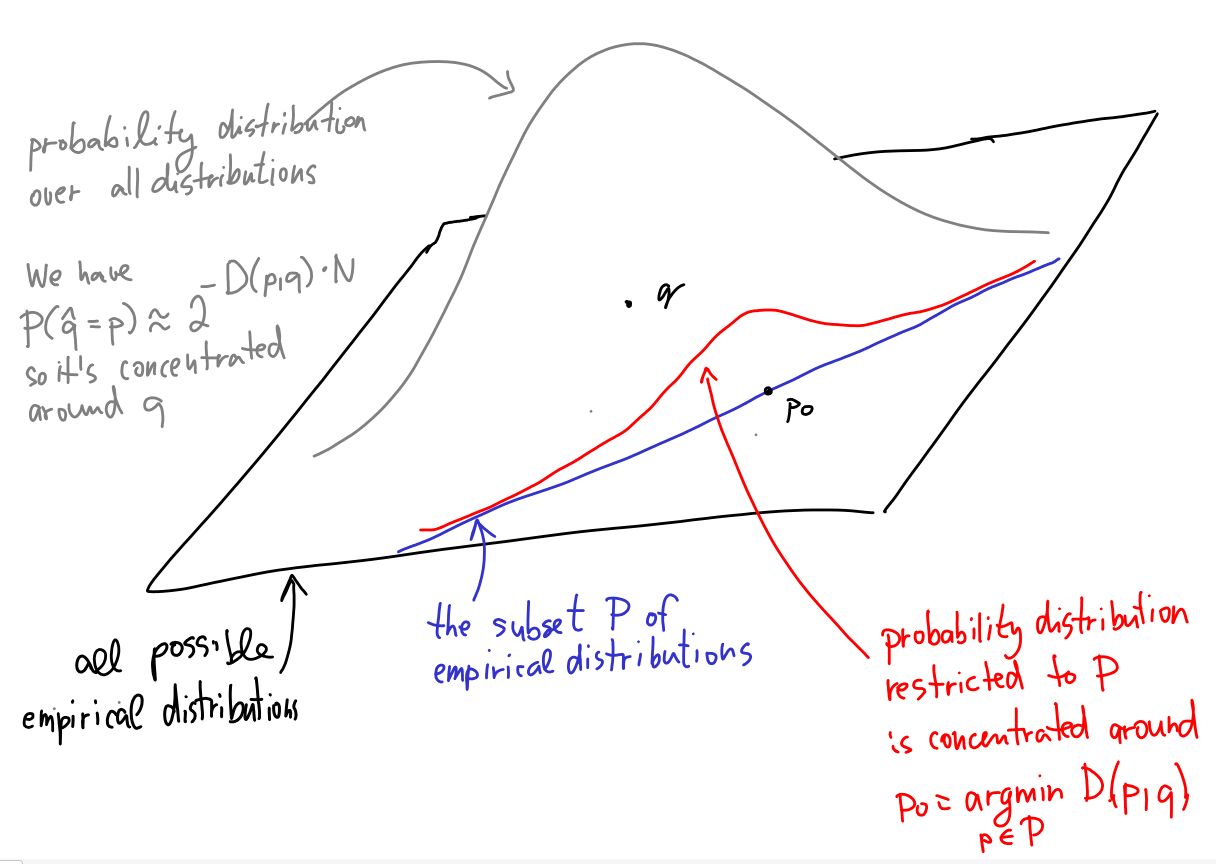 probability distribution
over all distributions
We have
P(q̂=p) ≈ 2^{-D(p,q)·N}
so it's concentrated
around q
q
p0
all possible
empirical distributions
the subset P of
empirical distributions
probability distribution
restricted to P
is concentrated around
p0 = argmin D(p,q)
p∈P